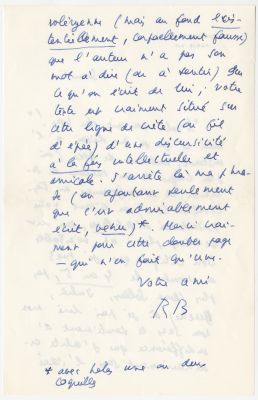 (mais au fond
, corporellement faux)
que l'auteur n'a pas son
mot à dire (ou à sentir) sur
ce qu'on écrit de lui ; votre
texte est vraiment situé sur
cette ligne de crête (ou fil
d'épée) d'une discursivité
à la fois intellectuelle et
amicale. J'arrête là ma phra-
se (en ajoutant seulement
que c'est admirablement
écrit, )*. Merci vrai-
ment pour cette double page
— qui n'en fait qu'une.
Votre ami
RB
* avec hélas une ou deux
coquilles